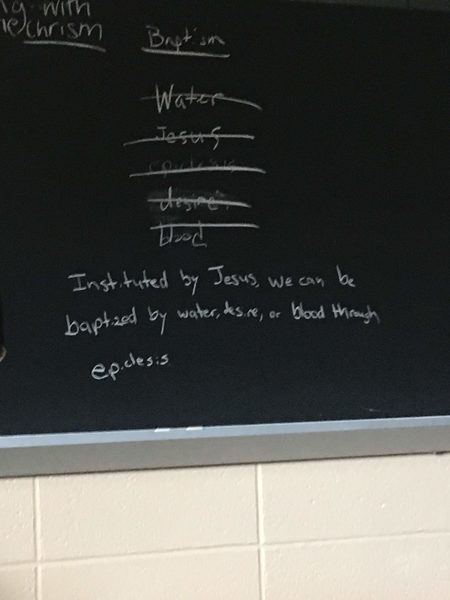 ng with
he chrism
Baptism
Water
Jesus
epiclesis
desire
blood
Instituted by Jesus, we can be
baptized by water, desire, or blood through
epiclesis